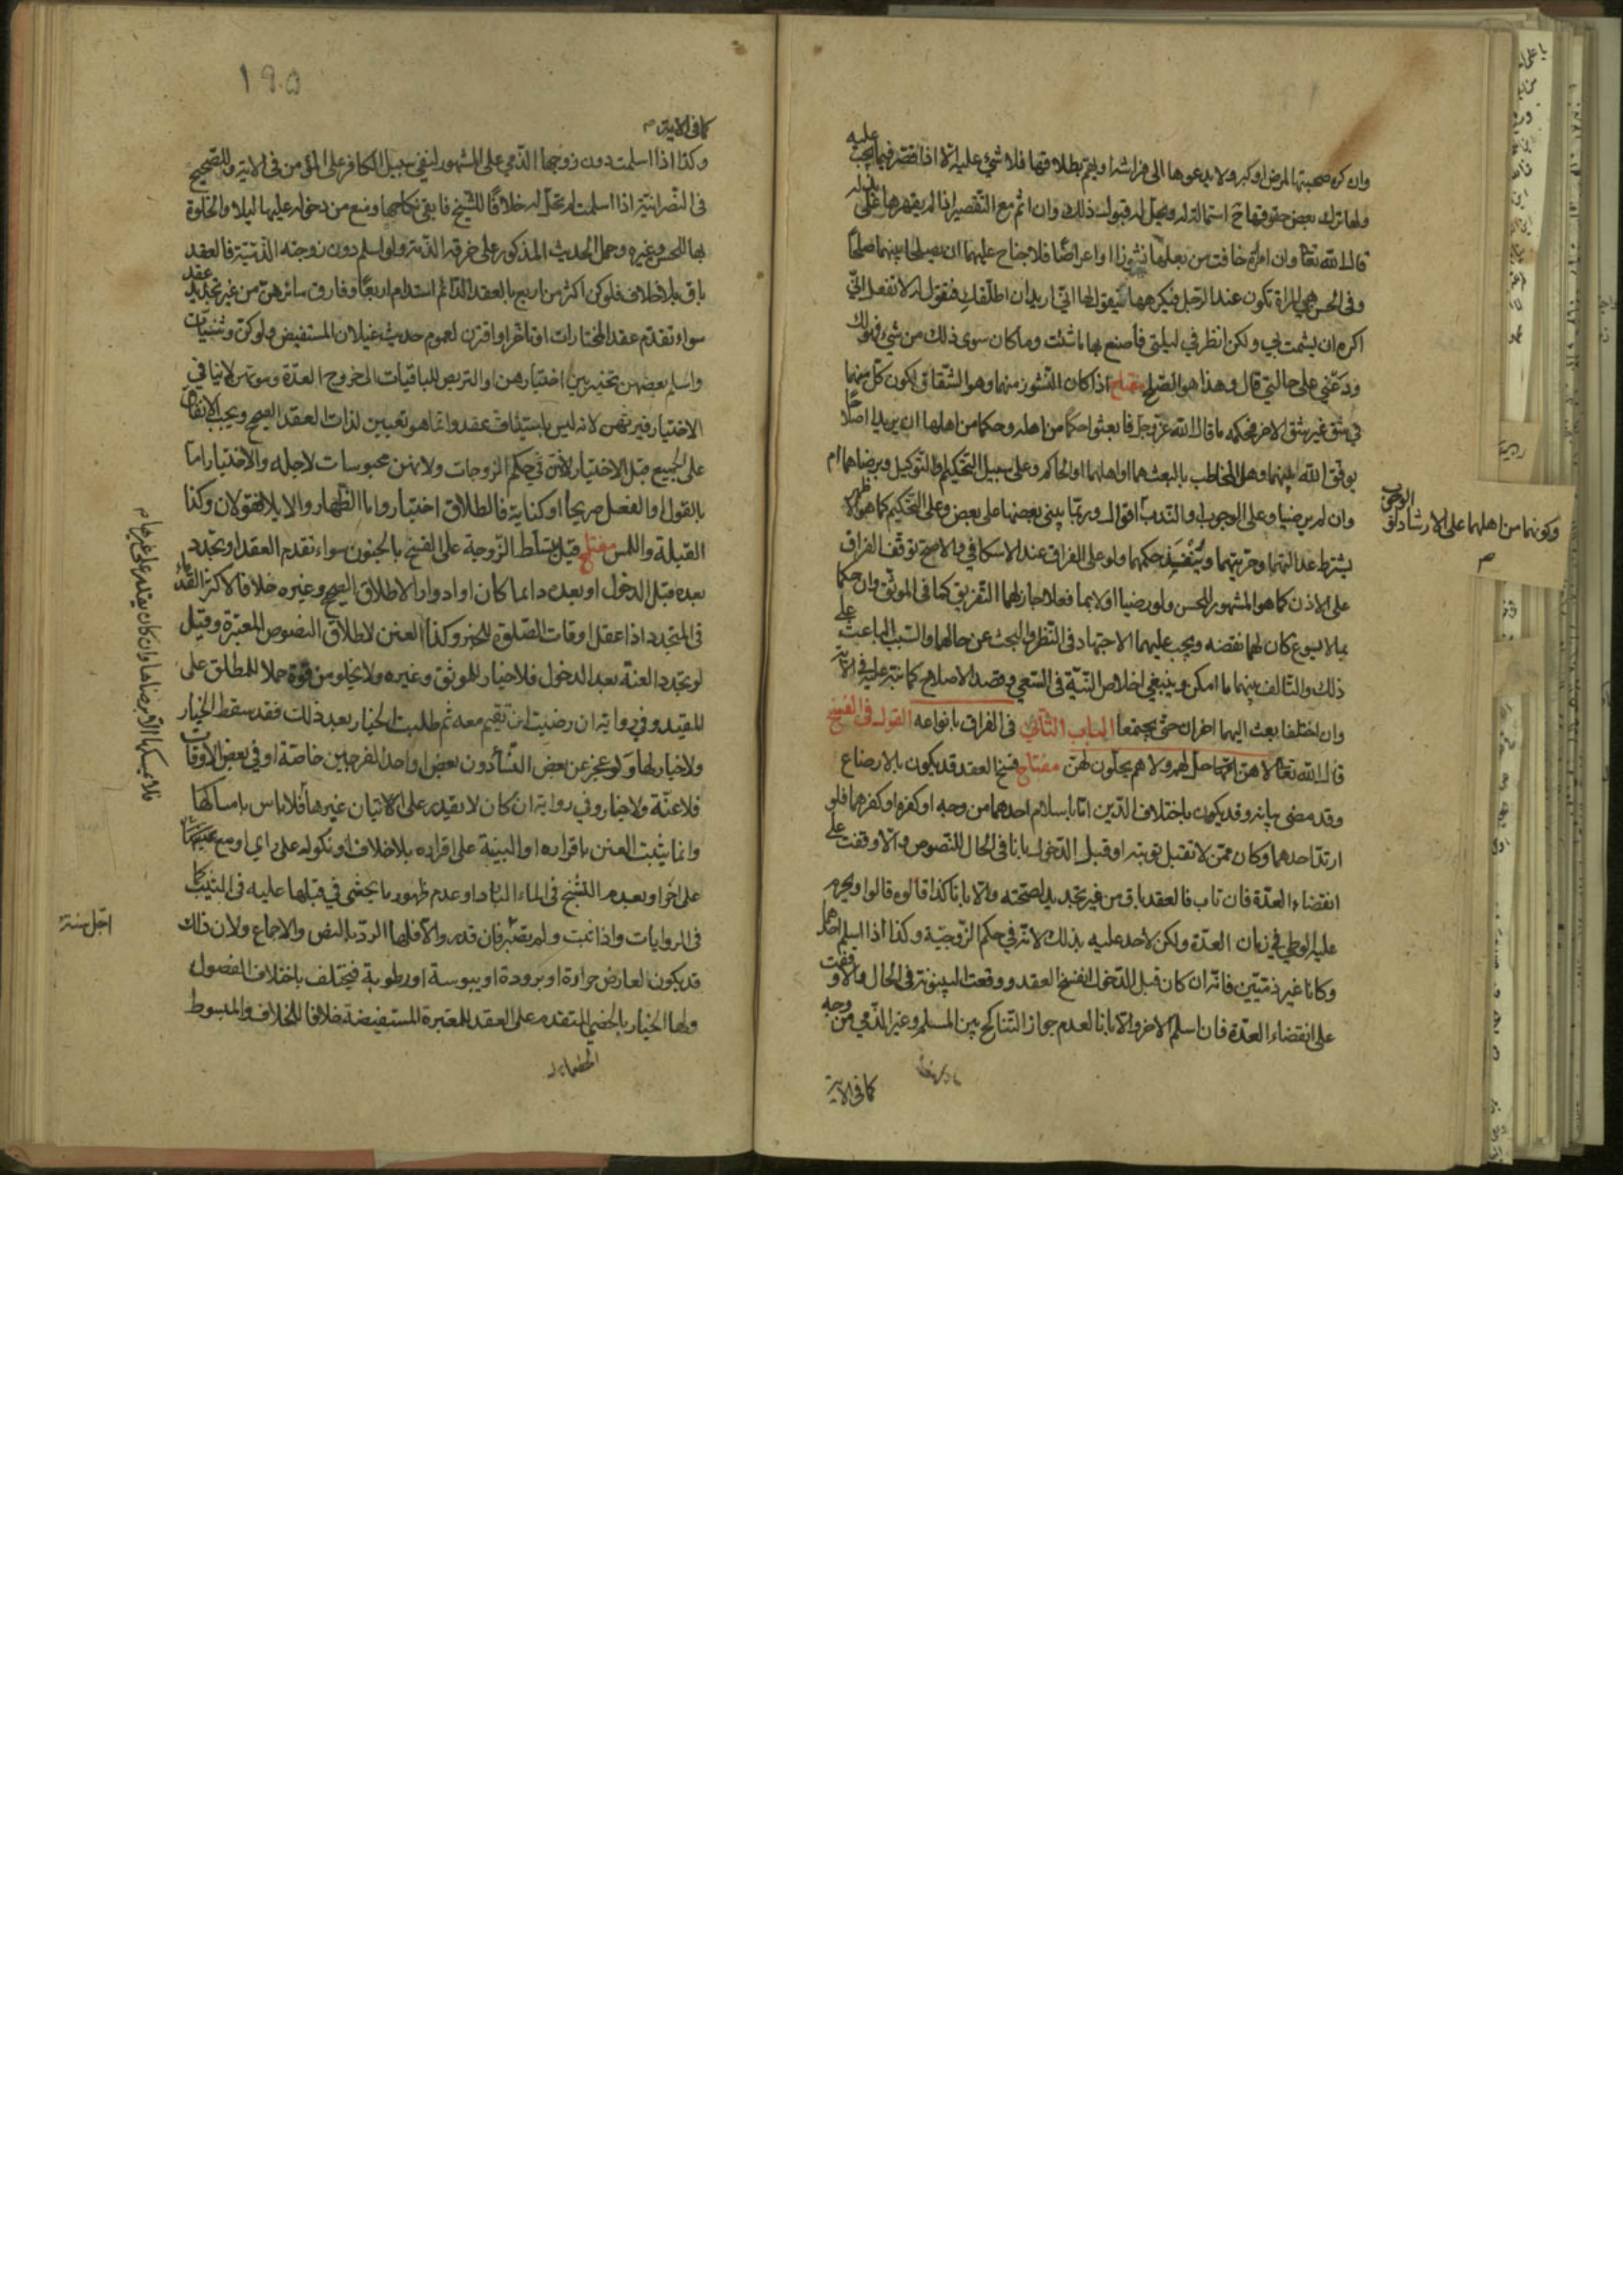 وان كره صحبتها لمرض او كبر ولا يدعوها الى فراشه او يهتم بطلاقها فلا شيء عليه الا اذا قصر فيما يجب عليه
ولها ترك بعض حقوقها ح استمالة له ويحل له قبول ذلك وان اثم مع التقصير اذا لم يقهرها على بذله
قال الله تعالى وان امرأة خافت من بعلها نشوزا او اعراضا فلا جناح عليهما ان يصلحا بينهما صلحا
وفي الحسن هي المراة تكون عند الرجل فيكرهها فيقول لها اني اريد ان اطلقك فتقول له لا تفعل اني
اكره ان يشمت بي ولكن انظر في ليلتي فاصنع بها ما شئت وما كان سوى ذلك من شيء فهو لك
ودعني على حالتي قال وهذا هو الصلح مفتاح اذا كان النشوز منهما وهو الشقاق لكون كل منهما
في شق غير شق الاخر فحكمه ما قال الله عز وجل فابعثوا حكما من اهله وحكما من اهلها ان يريدا اصلاحا
يوفق الله بينهما وهل المخاطب بالبعث هما او اهلهما او الحاكم وعلى سبيل التحكيم او التوكيل وبرضاهما ام
وان لم يرضيا وعلى الوجوب او الندب اقوال وربما يبنى بعضها على بعض وعلى التحكيم كما هو الاظهر
يشترط عدالتهما وحريتهما وينفذ حكمهما ولو على الفراق عند الاسكافي والاصح توقف الفراق
على الاذن كما هو المشهور للحسن ولو رضيا اولا بما فعلا جاز لهما التفريق كما في الموثق وان حكما
بما لا يسوغ كان لهما نقضه ويجب عليهما الاجتهاد في النظر والبحث عن حالهما والسبب الباعث على
ذلك والتالف بينهما ما امكن وينبغي اخلاص النية في السعي وقصد الاصلاح كما نبه عليه في الاية
وان اختلفا بعث اليهما اخران حتى يجتمعا الباب الثاني في الفراق بانواعه القول في الفسخ
قال الله تعالى لا هن حل لهم ولا هم يحلون لهن مفتاح فسخ العقد قد يكون بالارضاع
وقد مضى بيانه وقد يكون باختلاف الدين اما باسلام احدهما من وجه او كفره او كفرهما فلو
ارتد احدهما وكان ممن لا تقبل توبته او قبل الدخول بانا في الحال للنصوص والا وقفت على
انقضاء العدة فان تاب فالعقد باق من غير تجديد لصحته والا بانا كذا قالوه قالوا ويحرم
عليه الوطي في زمان العدة ولكن لا حد عليه بذلك لانه في حكم الزوجية وكذا اذا اسلم احدهما
وكانا غير ذميين فانه ان كان قبل الدخول انفسخ العقد ووقعت البينونة في الحال والا وقفت
على انقضاء العدة فان اسلم الاخر والا بانا لعدم جواز التناكح بين المسلم وغير الذمي من وجه
كما في الاية
وكونهما من اهلهما على الارشاد او الوجوب
١٩٥
كما في الاية م
وكذا اذا اسلمت دون زوجها الذمي على المشهور لنفي سبيل الكافر على المؤمن في الاية وللصحيح
في النصرانية اذا اسلمت لم تحل له خلافا للشيخ فابقى نكاحها ومنع من دخوله عليها ليلا والخلوة
بها للحسن وغيره وحمل الحديث المذكور على خرقه الذمة ولو اسلم دون زوجته الذمية فالعقد
باق بلا خلاف فلو كن اكثر من اربع بالعقد الدائم استدام اربعا وفارق سائرهن من غير تجديد عقد
سواء تقدم عقد المختارات او تاخر او اقترن لعموم حديث غيلان المستفيض ولو كن وثنيات
واسلم بعضهن تخير بين اختيارهن او التربص للباقيات الى خروج العدة وموتهن لا ينافي
الاختيار فيرثهن لانه ليس باستيناف عقد وانما هو تعيين لذات العقد الصحيح ويجب الانفاق
على الجميع قبل الاختيار لانهن في حكم الزوجات ولانهن محبوسات لاجله والاختيار اما
بالقول او الفعل صريحا او كناية فالطلاق اختيار واما الظهار والايلاء فقولان وكذا
القبلة واللمس مفتاح قيل يتسلط الزوجة على الفسخ بالجنون سواء تقدم العقد او تجدد
بعده قبل الدخول او بعده دائما كان او ادوارا لاطلاق الصحيح وغيره خلافا لاكثر القدماء
في المتجدد اذا عقل اوقات الصلوة للخبر وكذا العنن لاطلاق النصوص المعتبرة وقيل
لو تجدد العنة بعد الدخول فلا خيار للموثق وغيره ولا يخلو من قوة حملا للمطلق على
المقيد وفي رواية ان رضيت ان تقيم معه ثم طلبت الخيار بعد ذلك فقد سقط الخيار
ولا خيار لها ولو عجز عن بعض النساء دون بعض او احد الفرجين خاصة او في بعض الاوقات
فلا عنة ولا خيار وفي رواية ان كان لا يقدر على الاتيان غيرها فلا باس بامساكها
وانما يثبت العنن باقراره او البينة على اقراره بلا خلاف او نكوله على راي او مع
على اخر او بعدم التشنج في الماء البارد او عدم ظهور ما يحشى في قبلها عليه في الثيب كما
في الروايات واذا ثبت ولم تصبر فان قدر والا فلها الرد بالنص والاجماع ولان ذلك
قد يكون لعارض حرارة او برودة او يبوسة او رطوبة فيختلف باختلاف الفصول
ولها الخيار بالخصي المتقدم على العقد للمعتبرة المستفيضة خلافا للخلاف والمبسوط
اجل سنة
فلا يمسكها الا برضاها وان كان يقدر على غيرها م